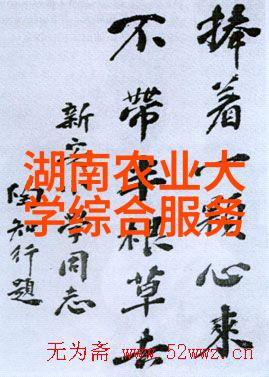 捧着一顆心來
不帶半根草去
新安小學同志
陶知行題
湖南农业大
学综合服务
无为斋 www.52wwz.cn